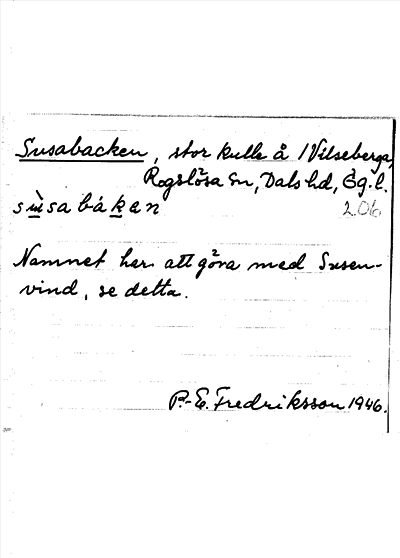 Susabacken, stor kulle å 1 Vilseberga,
Rogslösa sn, Dals hd, Ög. l.
sùsabákan 206
Namnet har att göra med Susen-
vind, se detta.
P.-E. Fredriksson 1946.